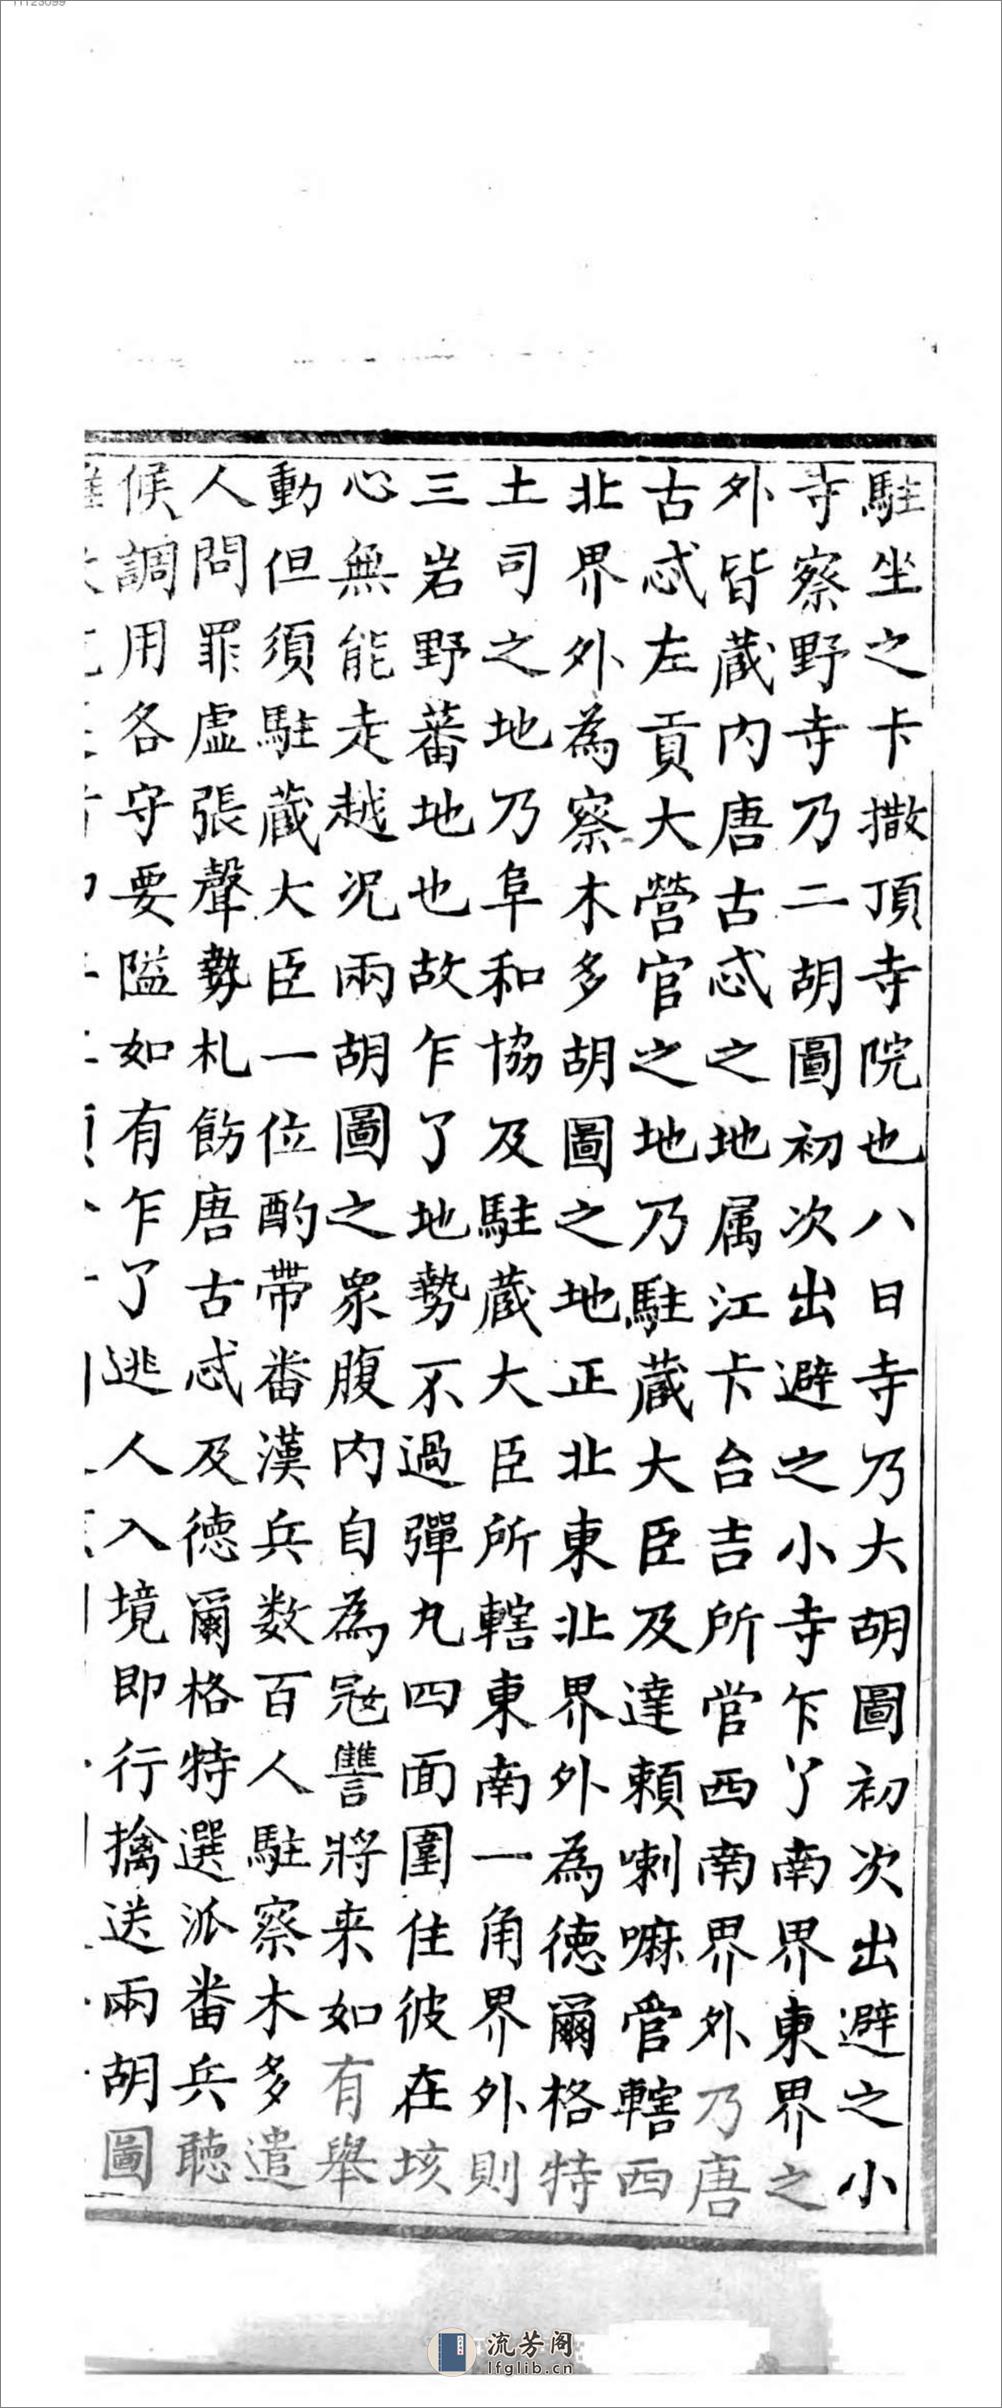 11125099
駐坐之卡撒頂寺院也八日寺乃大胡圖初次出避之小
寺察野寺乃二胡圖初次出避之小寺乍丫南界東界之
外皆蔵内唐古忒之地属江卡台吉所官西南界外乃唐
古忒左貢大營官之地乃駐蔵大臣及達賴喇嘛管轄西
北界外為察木多胡圖之地正北東北界外為徳爾格特
土司之地乃阜和協及駐蔵大臣所轄東南一角界外則
三岩野蕃地也故乍了地勢不過彈丸四面圍住彼在垓
心無能走越况兩胡圖之衆腹内自為冦讐將来如有舉
動但須駐蔵大臣一位酌帶番漢兵数百人駐察木多遣
人問罪虛張聲勢札飭唐古忒及徳爾格特選派番兵聴
候調用各守要隘如有乍了逃人入境即行擒送兩胡圖
流芳阁
lfglib.cn